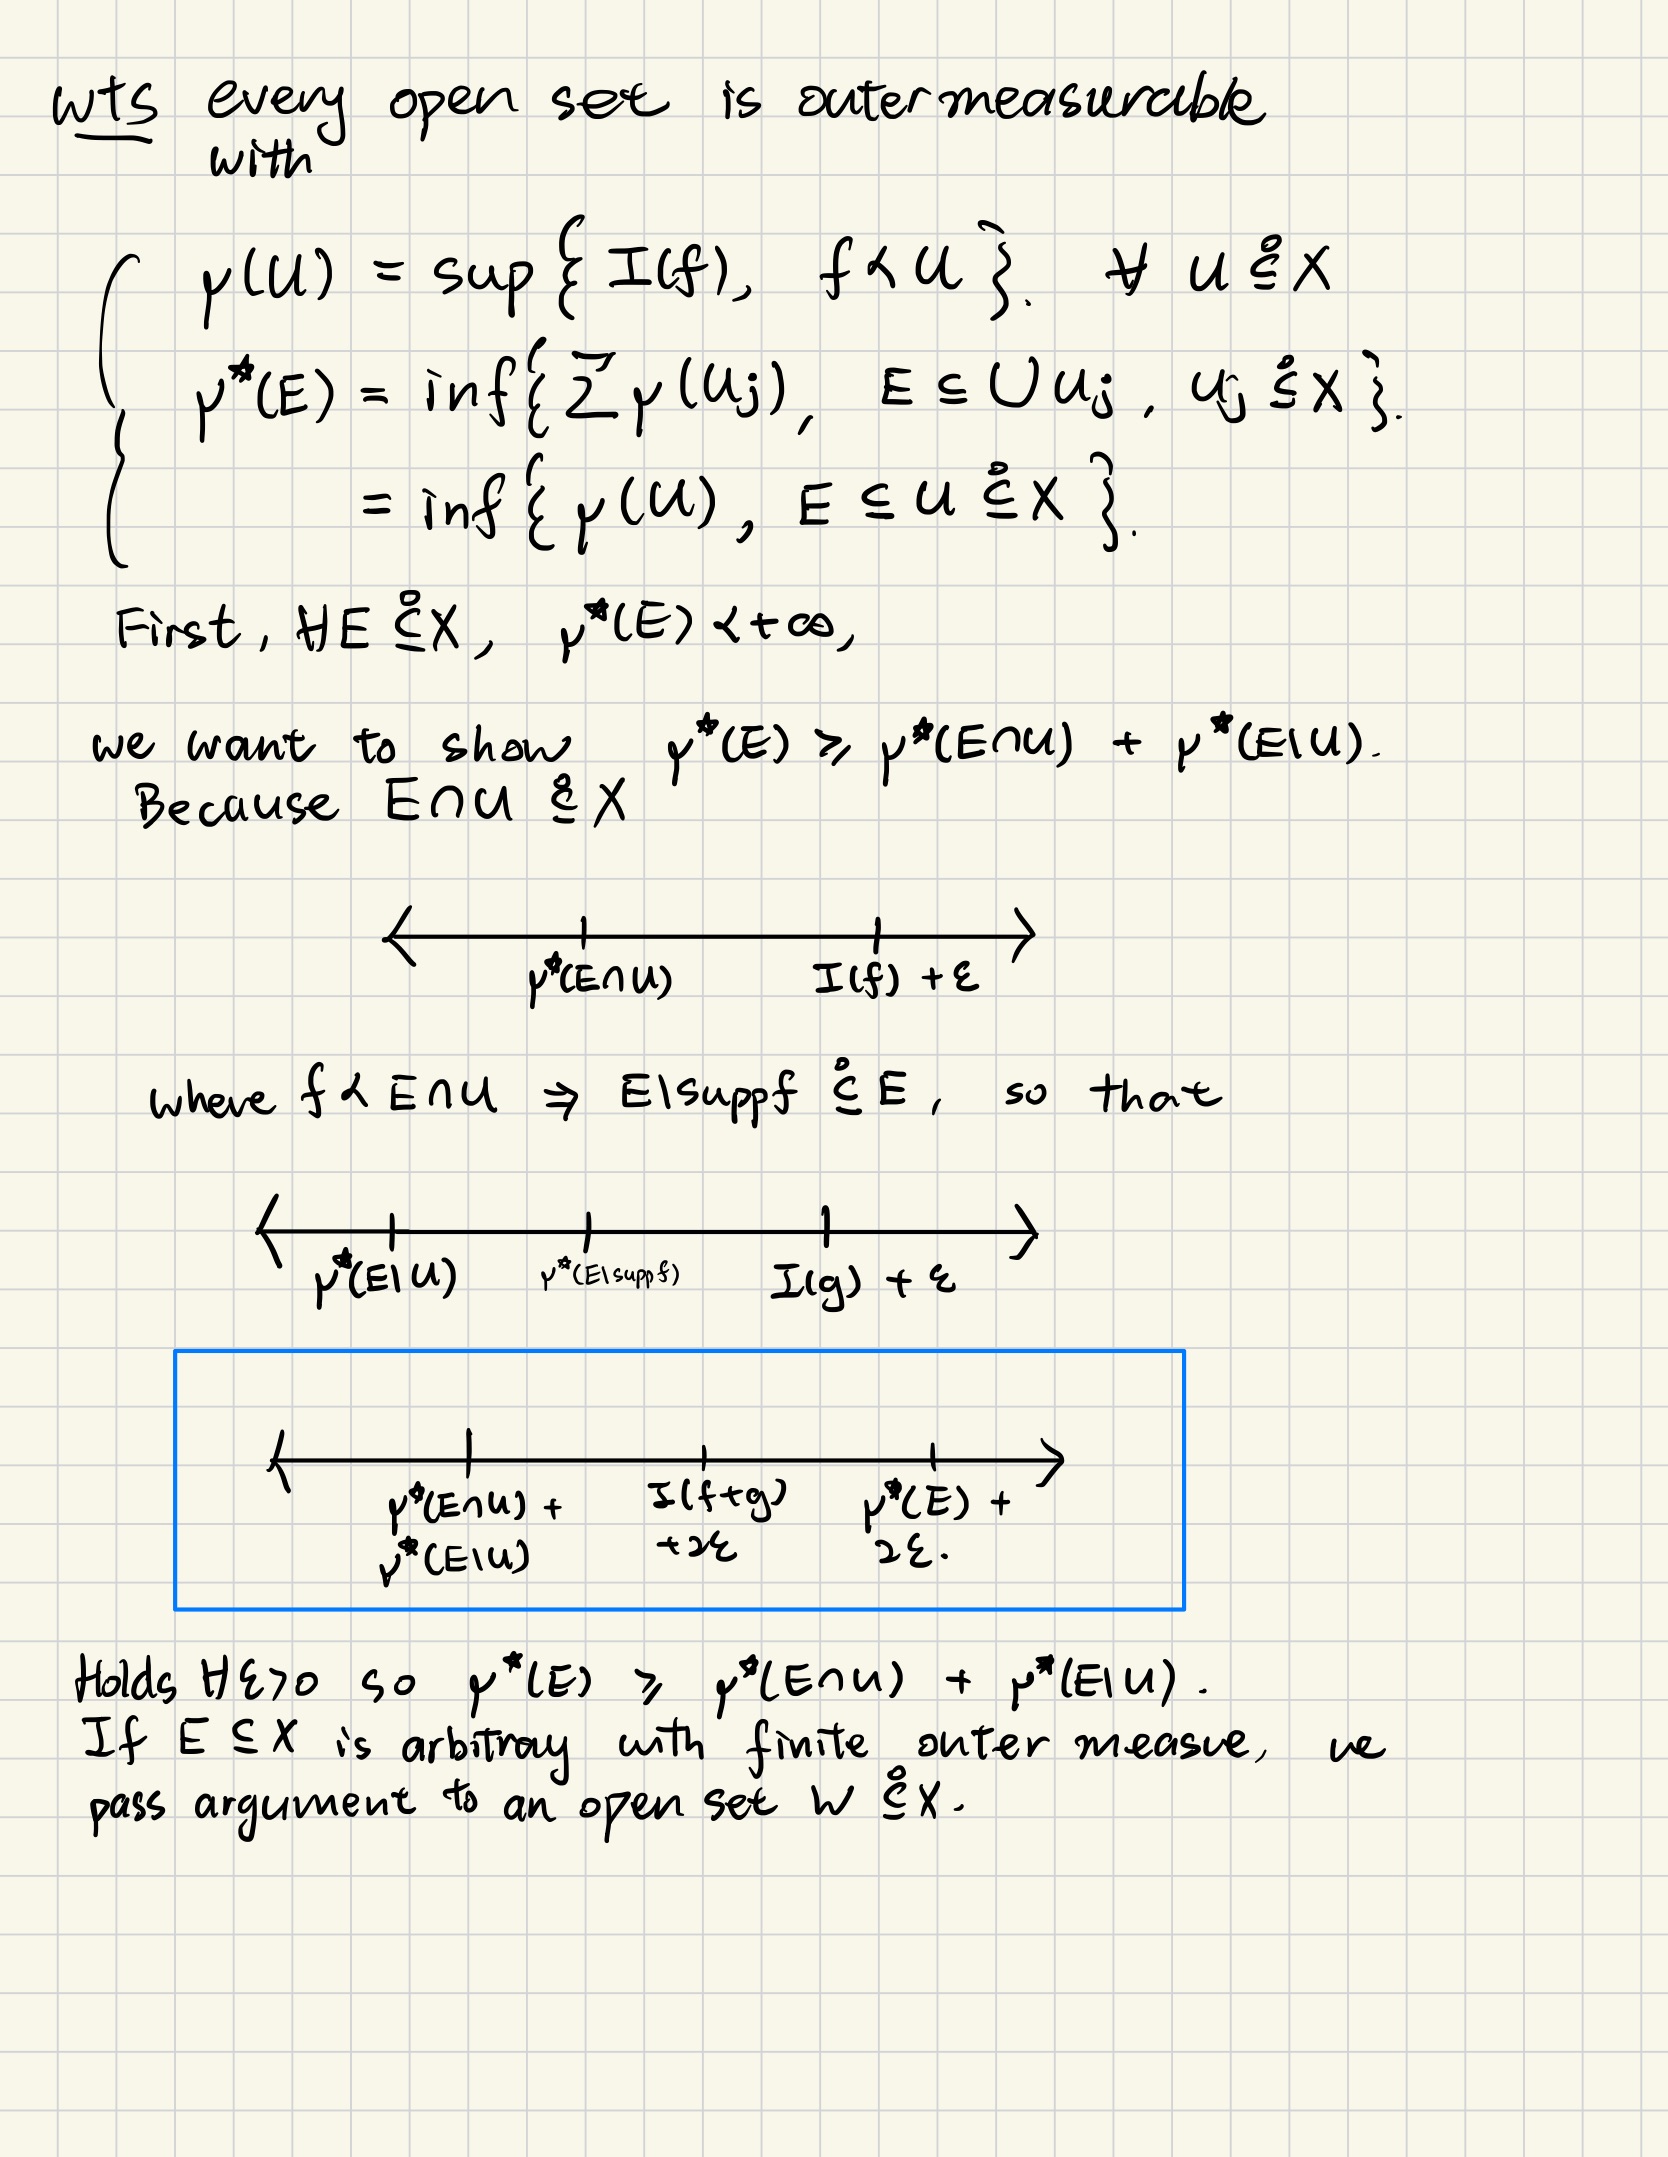 wts every open set is outermeasurable
with
μ(U) = sup{ I(f), f ≺ U }. ∀ U ⊆̊ X
μ*(E) = inf{ Σ μ(Uj), E ⊆ ∪ Uj, Uj ⊆̊ X }.
= inf{ μ(U), E ⊆ U ⊆̊ X }.
First, ∀E ⊆̊ X, μ*(E) < +∞,
we want to show μ*(E) ≥ μ*(E∩U) + μ*(E\U).
Because E∩U ⊆̊ X
μ*(E∩U) I(f) + ε
where f ≺ E∩U ⇒ E\suppf ⊆̊ E, so that
μ*(E\U) μ*(E\suppf) I(g) + ε
μ*(E∩U) + I(f+g) μ*(E) +
μ*(E\U) +2ε 2ε.
Holds ∀ε>0 so μ*(E) ≥ μ*(E∩U) + μ*(E\U).
If E ⊆ X is arbitray with finite outer measue, we
pass argument to an open set W ⊆̊ X.